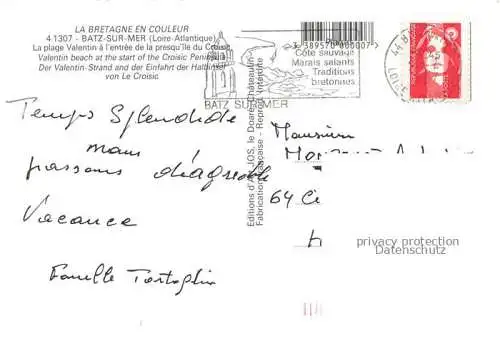 LA BRETAGNE EN COULEUR
4.1307 - BATZ-SUR-MER (Loire-Atlantique)
La plage Valentin à l'entrée de la presqu'île du Croisic.
Valentin beach at the start of the Croisic Peninsula
Der Valentin-Strand and der Einfahrt der Halbinsel
von Le Croisic.
3 389570 000007
Côte sauvage
Marais salants
Traditions
bretonnes
BATZ SUR MER
44 B
Temps Splendide
nous
passons d'agréable
Vacance
Famille Tartaglin
Editions d'Art JOS, le Doaré, Châteaulin
Fabrication Française - Reprod. Interdite
Monsieur
64 Ci
privacy protection
Datenschutz